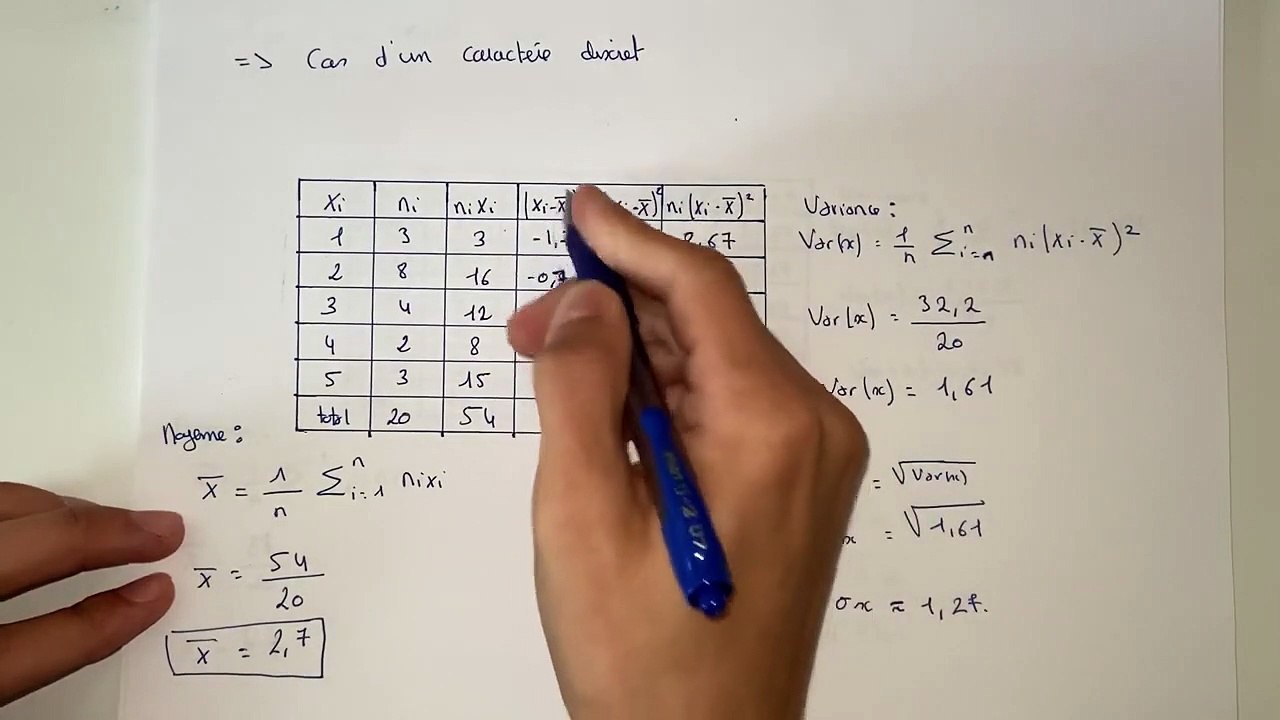 => Cas d'un caractère discret
xi ni nixi (xi-x̄ xi-x̄)² ni(xi-x̄)²
1 3 3 -1, ,67
2 8 16 -0,7
3 4 12
4 2 8
5 3 15
total 20 54
Moyenne :
x̄ = 1/n ∑ⁿi=1 nixi
x̄ = 54/20
x̄ = 2,7
Variance :
Var(x) = 1/n ∑ⁿi=n ni(xi-x̄)²
Var(x) = 32,2/20
Var(x) = 1,61
= √Var(x)
x = √1,61
σx ≈ 1,27.